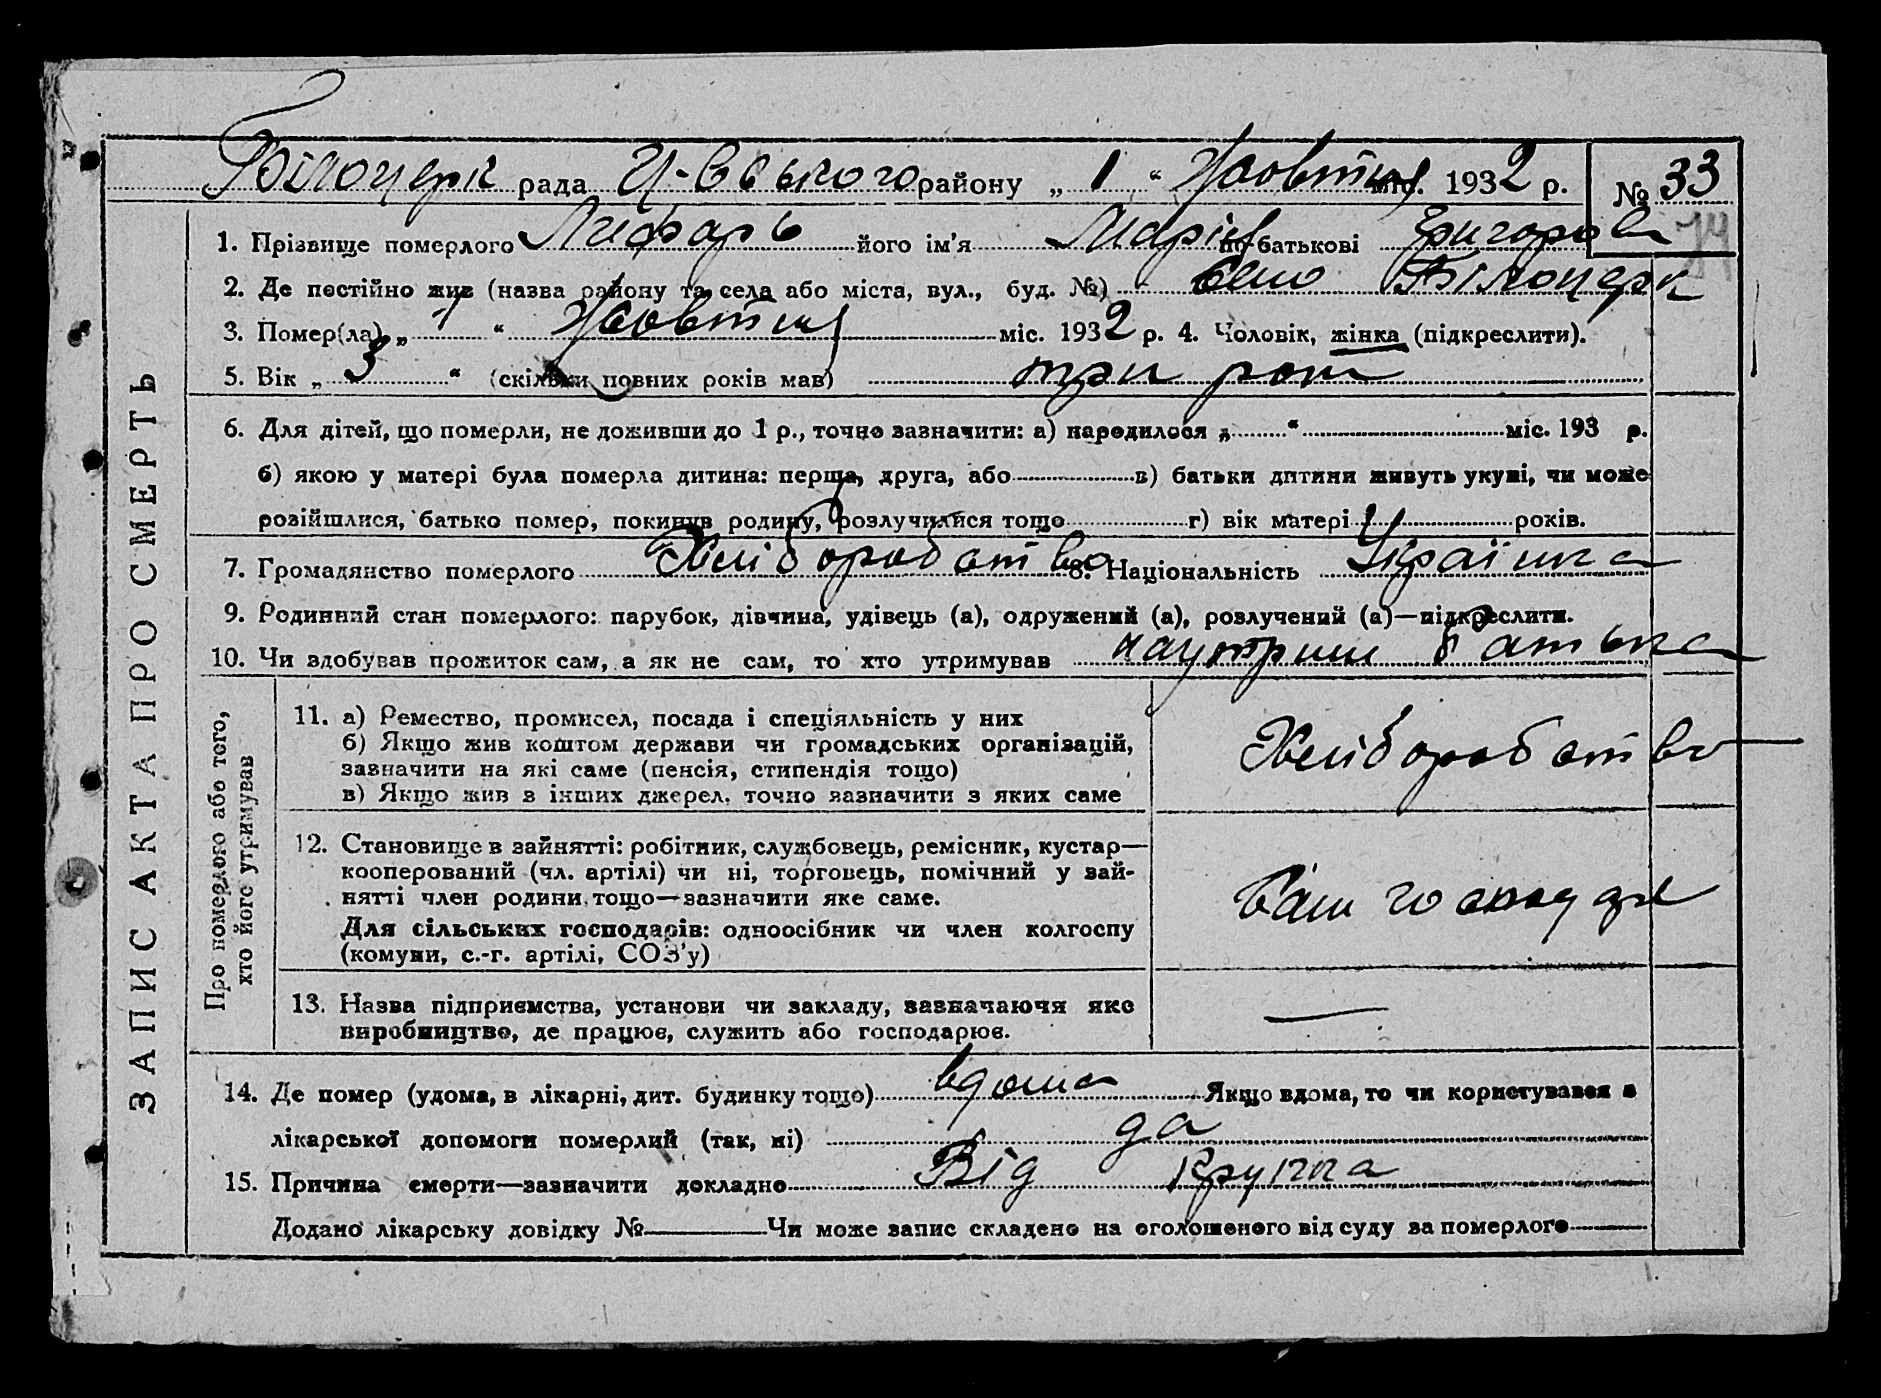 Білоцерк рада району „ 1 “ Жовтня міс. 1932 р. № 33
1. Прізвище померлого Лифарь його ім'я Марія по-батькові Григоров
2. Де постійно жив (назва району та села або міста, вул., буд. №) село Білоцерк
3. Помер(ла) „ 1 “ Жовтня міс. 1932 р. 4. Чоловік, жінка (підкреслити).
5. Вік „ 3 “ (скільки повних років мав) три роки
6. Для дітей, що померли, не доживши до 1 р., точно зазначити: а) народилося „ “ міс. 193 р.
б) якою у матері була померла дитина: перша, друга, або в) батьки дитини живуть укупі, чи може
розійшлися, батько помер, покинув родину, розлучилися тощо г) вік матері років.
7. Громадянство померлого Хліборобство 8. Національність Українка
9. Родинний стан померлого: парубок, дівчина, удівець (а), одружений (а), розлучений (а)—підкреслити.
10. Чи здобував прожиток сам, а як не сам, то хто утримував батька
ЗАПИС АКТА ПРО СМЕРТЬ
Про померлого або того,
хто його утримував
11. а) Ремество, промисел, посада і спеціяльність у них
б) Якщо жив коштом держави чи громадських організацій,
зазначити на які саме (пенсія, стипендія тощо)
в) Якщо жив з інших джерел, точно зазначити з яких саме
Хліборобство
12. Становище в зайнятті: робітник, службовець, ремісник, кустар—
кооперований (чл. артілі) чи ні, торговець, помічний у зай-
нятті член родини тощо—зазначити яке саме.
Для сільських господарів: одноосібник чи член колгоспу
(комуни, с.-г. артілі, СОЗ'у)
13. Назва підприємства, установи чи закладу, зазначаючи яке
виробництво, де працює, служить або господарює.
14. Де помер (удома, в лікарні, дит. будинку тощо) вдома Якщо вдома, то чи користувався з
лікарської допомоги померлий (так, ні) да
15. Причина смерти—зазначити докладно Від Крупа
Додано лікарську довідку № Чи може запис складено на оголошеного від суду за померлого